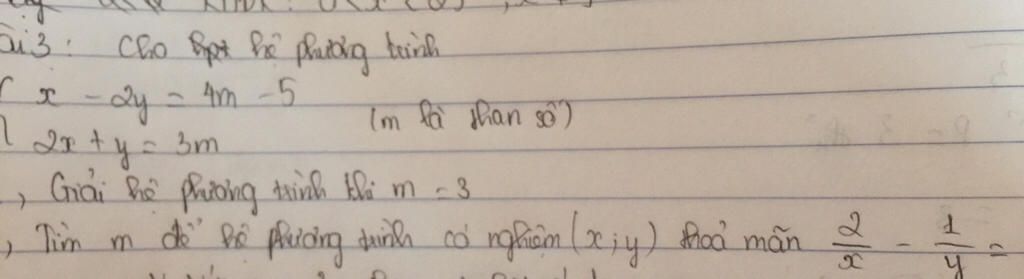 ài 3: Cho hpt hệ phương trình
x - 2y = 4m - 5
(m là tham số)
2x + y = 3m
, Giải hệ phương trình khi m = 3
, Tìm m để hệ phương trình có nghiệm (x; y) thoả mãn 2/x - 1/y =